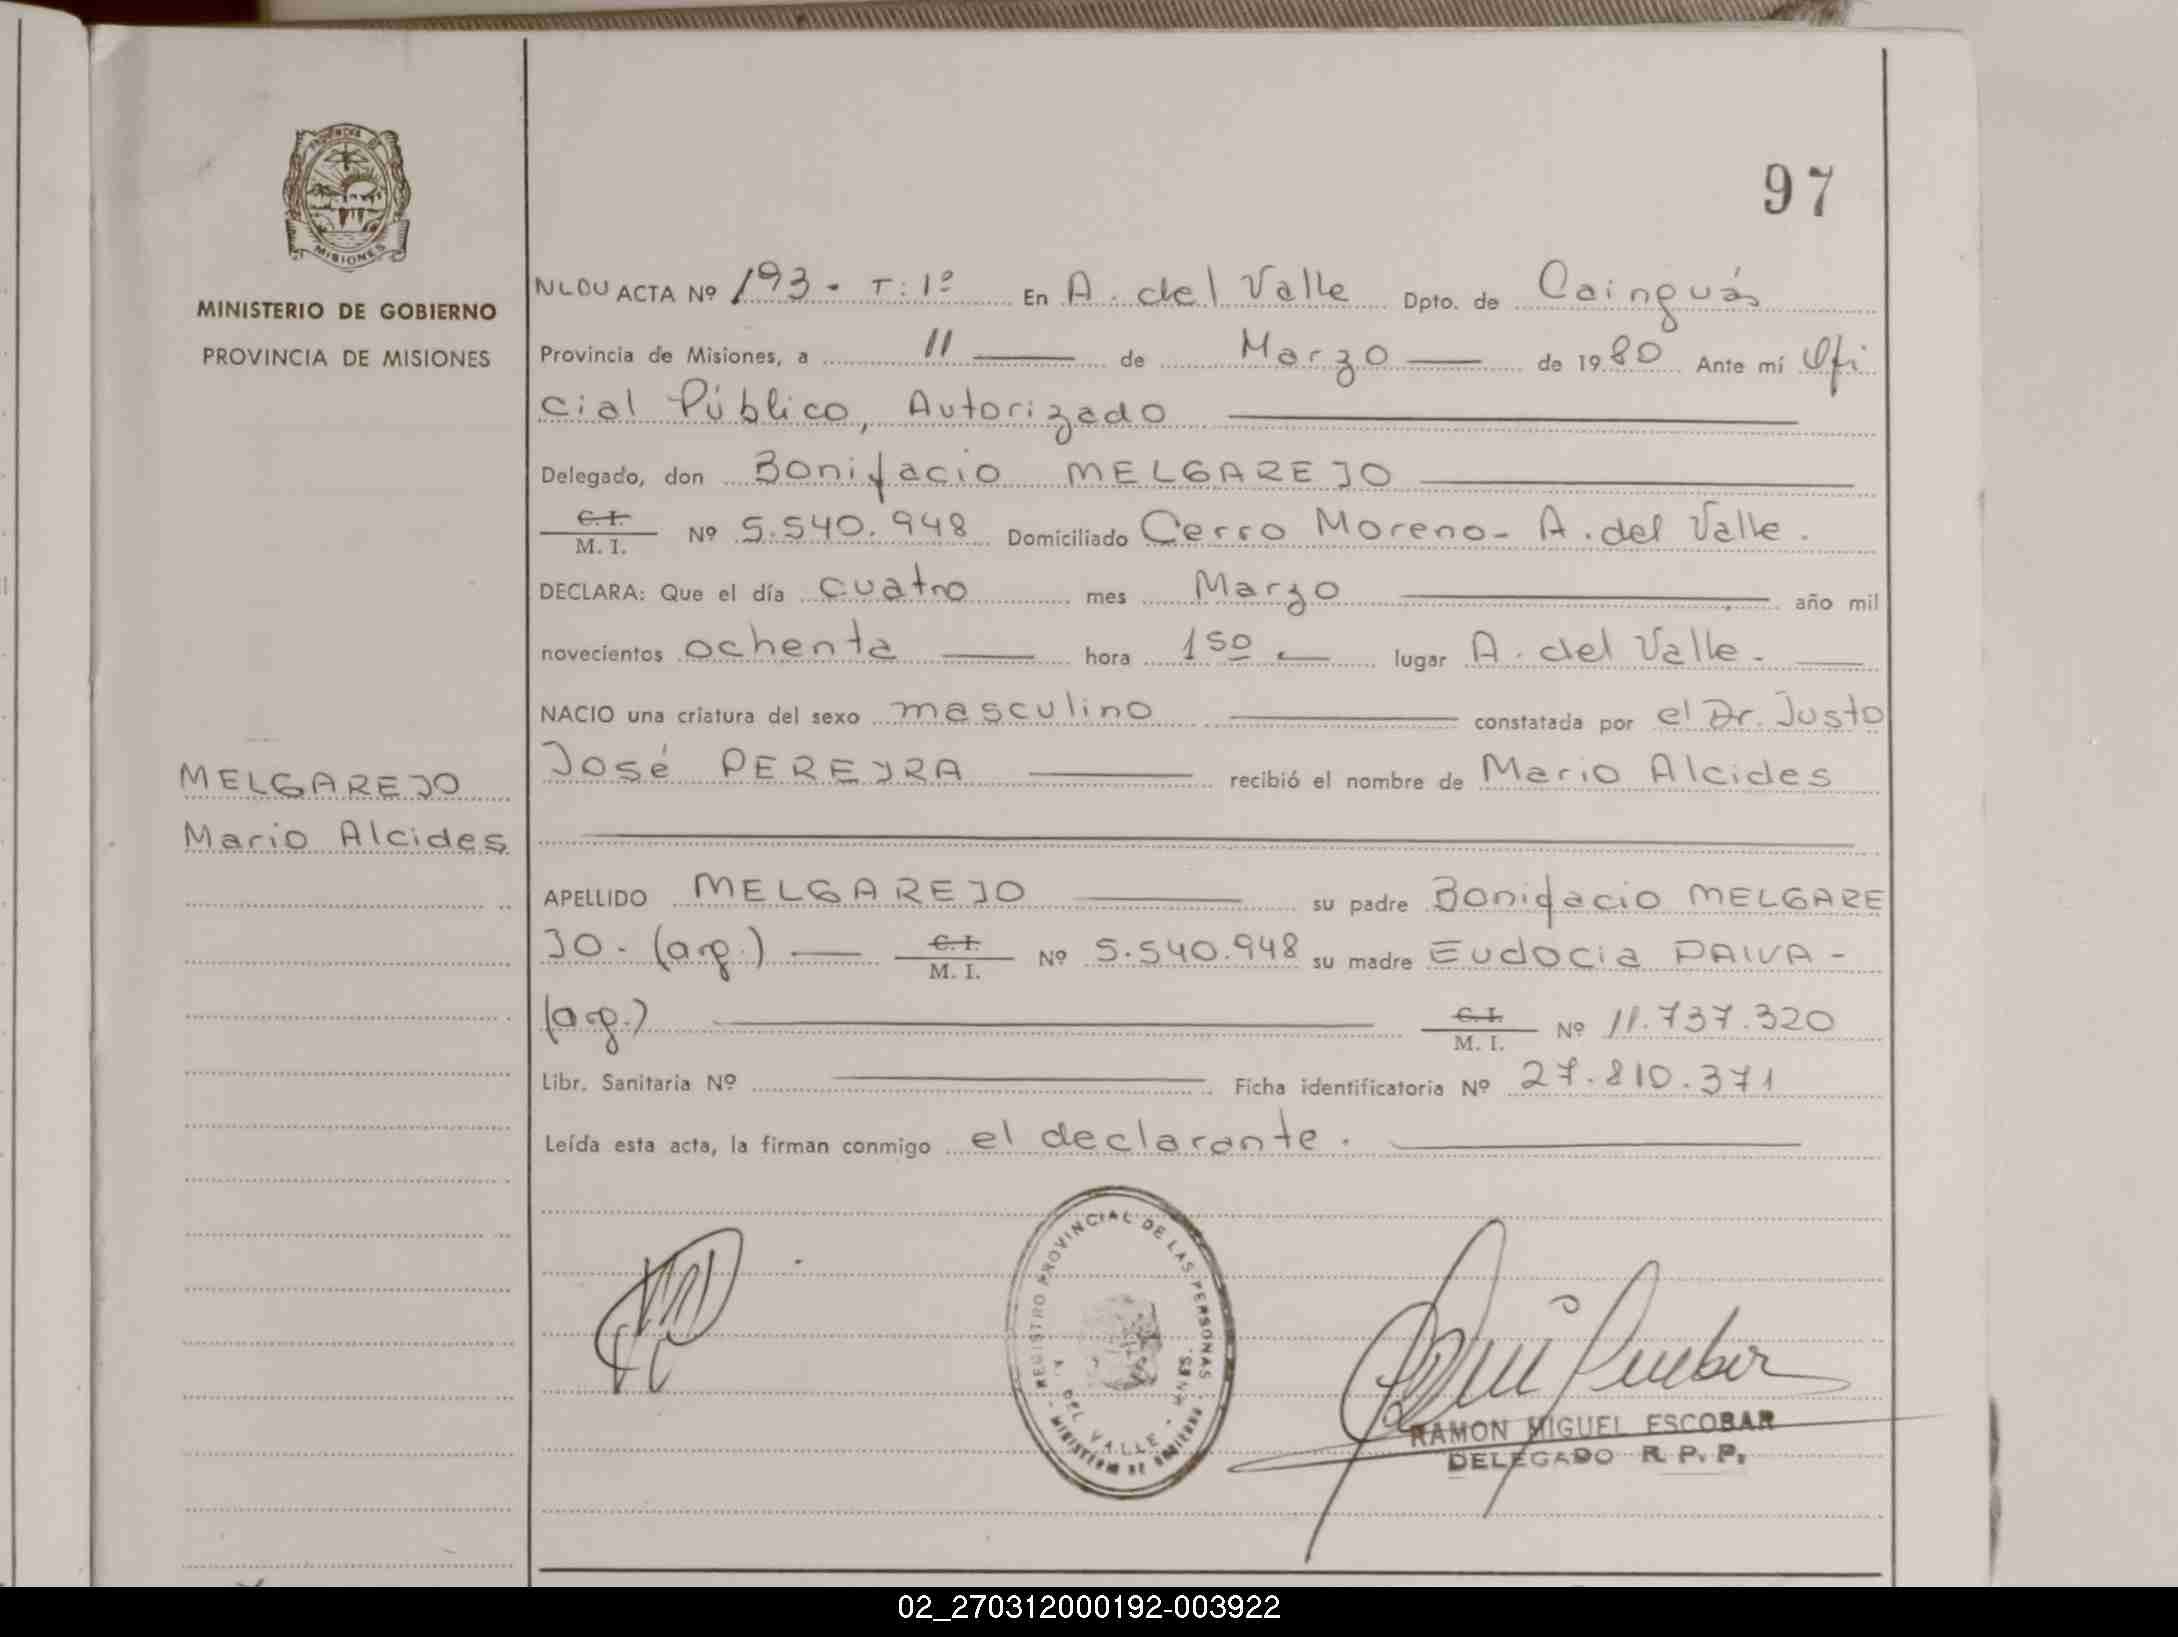 97
MINISTERIO DE GOBIERNO
PROVINCIA DE MISIONES
MISIONES
NLDU ACTA Nº 193 - T: 1º En A. del Valle Dpto. de Cainguás
Provincia de Misiones, a 11 de Marzo de 1980 Ante mí Ofi
cial Público, Autorizado
Delegado, don Bonifacio MELGAREJO
C. I.
M. I. Nº 5.540.948 Domiciliado Cerro Moreno - A. del Valle.
DECLARA: Que el día cuatro mes Marzo año mil
novecientos ochenta hora 1 50 lugar A. del Valle.
NACIO una criatura del sexo masculino constatada por el Dr. Justo
José PEREYRA recibió el nombre de Mario Alcides
MELGAREJO
Mario Alcides
APELLIDO MELGAREJO su padre Bonifacio MELGARE
JO - (arg.) C. I. M. I. Nº 5.540.948 su madre Eudocia PAIVA -
(arg.) C. I. M. I. Nº 11.737.320
Libr. Sanitaria Nº Ficha identificatoria Nº 27.810.371
Leída esta acta, la firman conmigo el declarante.
REGISTRO PROVINCIAL DE LAS PERSONAS
A. DEL VALLE - MNES.
MINISTERIO DE GOBIERNO
RAMON MIGUEL ESCOBAR
DELEGADO R. P. P.
02_270312000192-003922